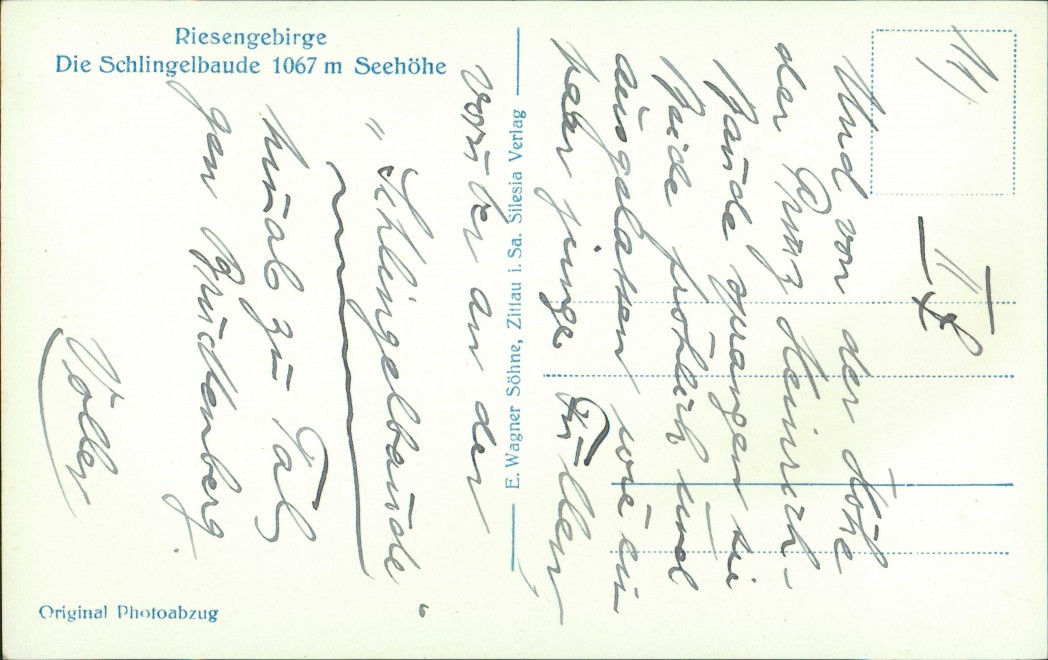 Riesengebirge
Die Schlingelbaude 1067 m Seehöhe
Und von der Höhe
der Prinz Heinrich-
baude sprangen sie
Beide fröhlich und
ausgelassen wie ein
paar junge Füllen
vorüber an der
"Schlingelbaude"
hinab zu Tal
gen Brückenberg.
E. Wagner Söhne, Zittau i. Sa. Silesia Verlag
Original Photoabzug